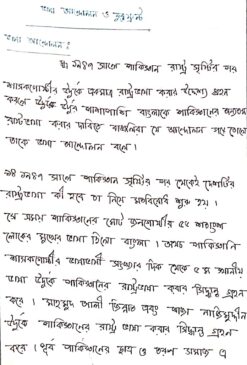 ভাষা আন্দোলন ও যুক্তফ্রন্ট
ভাষা আন্দোলন:
১৯৪৭ সালে পাকিস্তান রাষ্ট্র সৃষ্টির পর
শাসকগোষ্ঠীর উর্দুকে একমাত্র রাষ্ট্রভাষা করার উদ্দেশ্য গ্রহন
করলে উর্দুর পাশাপাশি বাংলাকে পাকিস্তানের অন্যতম
রাষ্ট্রভাষা করার দাবিতে বাঙালিরা যে আন্দোলন গড়ে তোলে
তাকে ভাষা আন্দোলন বলে।
১৯৪৭ সালে পাকিস্তান সৃষ্টির পর থেকেই দেশটির
রাষ্ট্রভাষা কী হবে তা নিয়ে মতবিরোধ শুরু হয়।
সে সময় পাকিস্তানের মোট জনগোষ্ঠীর ৫৬ শতাংশ
লোকের মুখের ভাষা ছিলো বাংলা। অথচ পাকিস্তানি
শাসকগোষ্ঠীর ভাষাভাষী সংখ্যার দিক থেকে ৫ম স্থানীয়
ভাষা উর্দুকে পাকিস্তানের রাষ্ট্রভাষা করার সিদ্ধান্ত গ্রহন
করে। মোহাম্মদ আলী জিন্নাহ এবং খাজা নাজিমুদ্দীন
উর্দুকে পাকিস্তানের রাষ্ট্র ভাষা করার সিদ্ধান্ত গ্রহন
করে। পূর্ব পাকিস্তানের ছাত্র ও তরুণ সমাজ এ